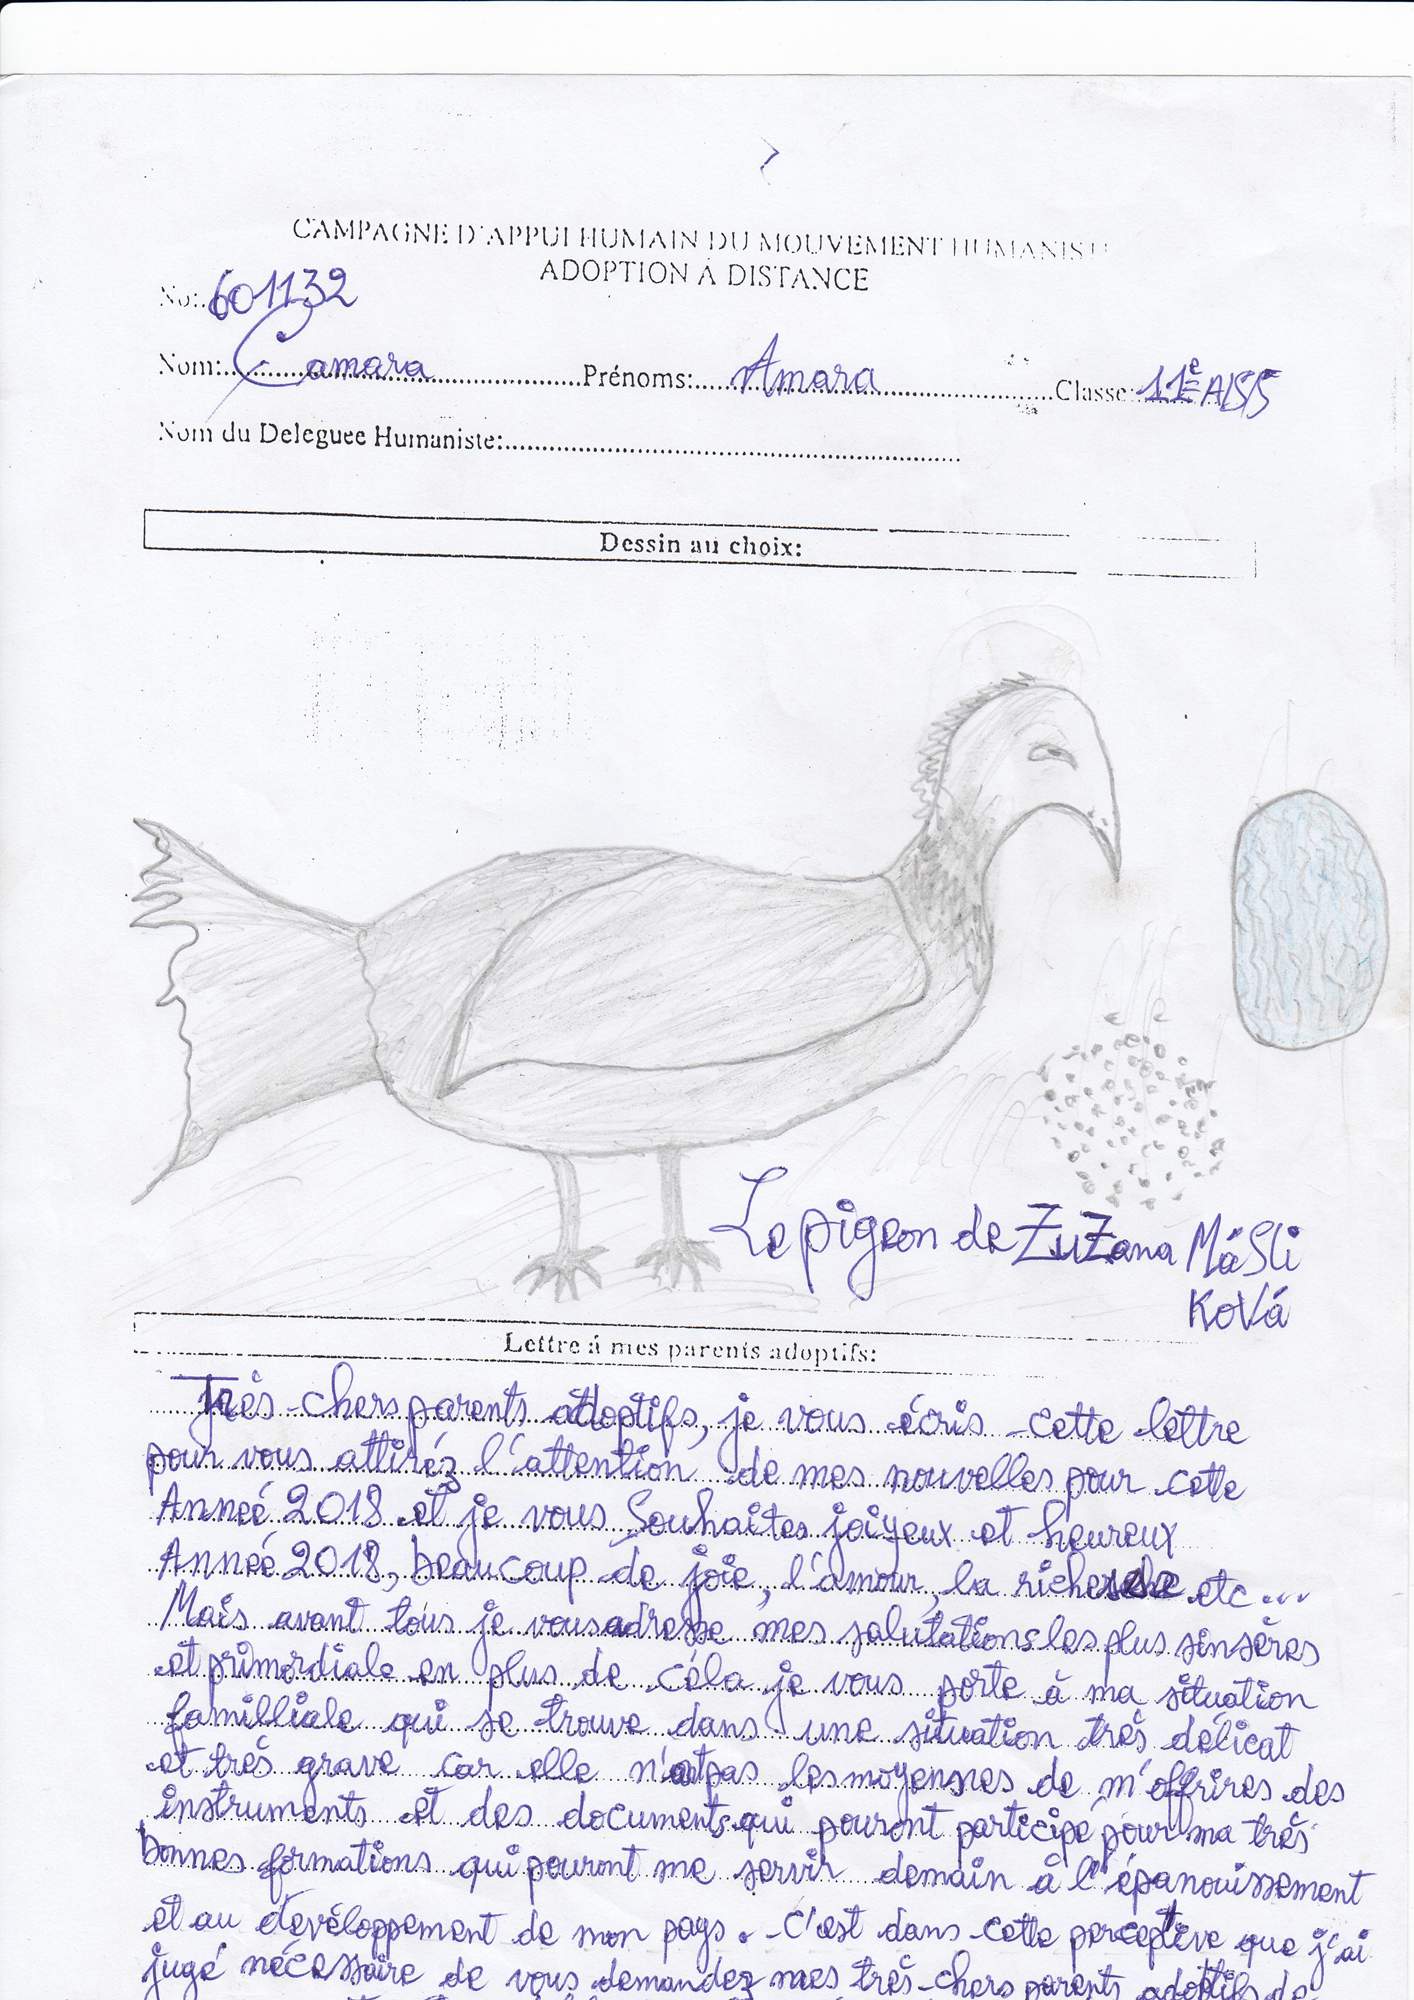 CAMPAGNE D'APPUI HUMAIN DU MOUVEMENT HUMANISTE
ADOPTION A DISTANCE
No:. 601132
Nom: Camara Prénoms: Amara Classe: 11è A/SS
Nom du Deleguee Humaniste:
Dessin au choix:
Le pigeon de ZuZana MáSli
KoVá
Lettre á mes parents adoptifs:
Très-chers parents adoptifs, je vous écris cette lettre
pour vous attiréz l'attention de mes nouvelles pour cette
Anneé 2018 et je vous Souhaites joiyeux et heureux
Anneé 2018, beaucoup de joie, l'amour, la etc...
Mais avant tous je vous adresse mes salutations les plus sinsères
et primordiale en plus de céla je vous porte à ma situation
familliale qui se trouve dans une situation très délicat
et très grave car elle n'at pas les moyennes de m'offrires des
instruments et des documents qui pouront participé pour ma très
bonnes formations qui pouront me servir demain à l'épanouissement
et au développement de mon pays. C'est dans cette perceptive que j'ai
jugé nécessaire de vous demandez mes très-chers parents adoptifs de